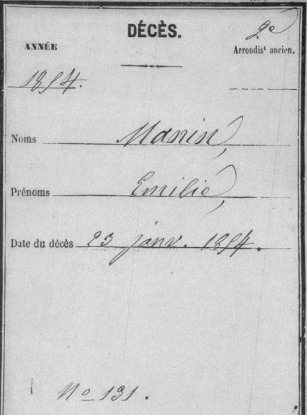 DÉCÈS.
ANNÉE
2e
Arrondist ancien.
1854.
Noms Manin,
Prénoms Emilie,
Date du décès 23 janv. 1854.
No 131.